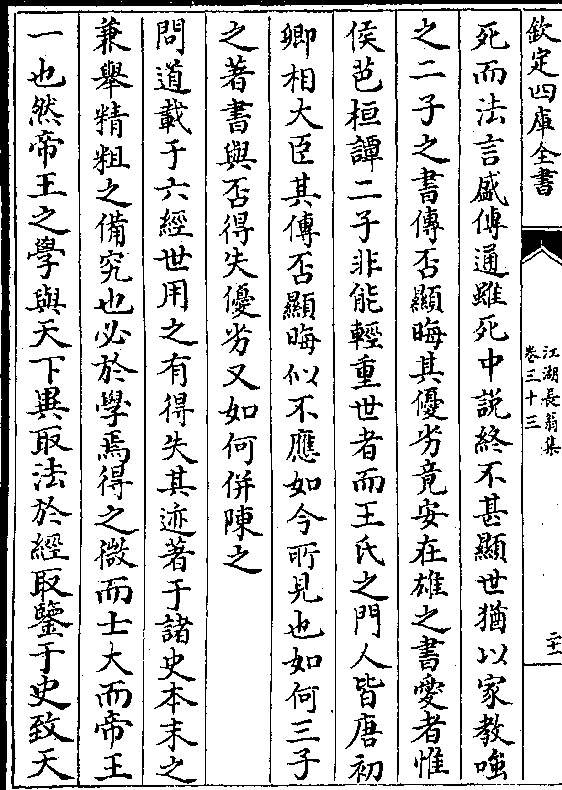 欽定四庫全書
江湖長翁集
卷三十三
二十
死而法言盛傳通雖死中説終不甚顯世猶以家教嗤
之二子之書傳否顯晦其優劣竟安在雄之書愛者惟
侯芭桓譚二子非能輕重世者而王氏之門人皆唐初
卿相大臣其傳否顯晦似不應如今所見也如何三子
之著書與否得失優劣又如何併陳之
問道載于六經世用之有得失其迹著于諸史本末之
兼舉精粗之備究也必於學焉得之微而士大而帝王
一也然帝王之學與天下異取法於經取鑒于史致天